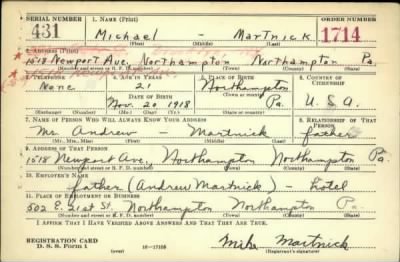 SERIAL NUMBER 1. NAME (Print) ORDER NUMBER
431 Michael - Martnick 1714
(First) (Middle) (Last)
2. ADDRESS (Print)
1518 Newport Ave. Northampton Northampton Pa.
(Number and street or R. F. D. number) (Town) (County) (State)
3. TELEPHONE 4. AGE IN YEARS 5. PLACE OF BIRTH 6. COUNTRY OF CITIZENSHIP
None 21 Northampton
DATE OF BIRTH (Town or county)
Nov. 20 1918 Pa. U.S.A.
(Exchange) (Number) (Mo.) (Day) (Yr.) (State or country)
7. NAME OF PERSON WHO WILL ALWAYS KNOW YOUR ADDRESS 8. RELATIONSHIP OF THAT PERSON
Mr. Andrew - Martnick father
(Mr., Mrs., Miss) (First) (Middle) (Last)
9. ADDRESS OF THAT PERSON
1518 Newport Ave, Northampton Northampton Pa.
(Number and street or R. F. D. number) (Town) (County) (State)
10. EMPLOYER'S NAME
father (Andrew Martnick) - hotel
11. PLACE OF EMPLOYMENT OR BUSINESS
502 E. 21st St. Northampton Northampton Pa.
(Number and street or R. F. D. number) (Town) (County) (State)
I AFFIRM THAT I HAVE VERIFIED ABOVE ANSWERS AND THAT THEY ARE TRUE.
REGISTRATION CARD
D. S. S. Form 1 (over) 16-17105 Mike Martnick
(Registrant's signature)